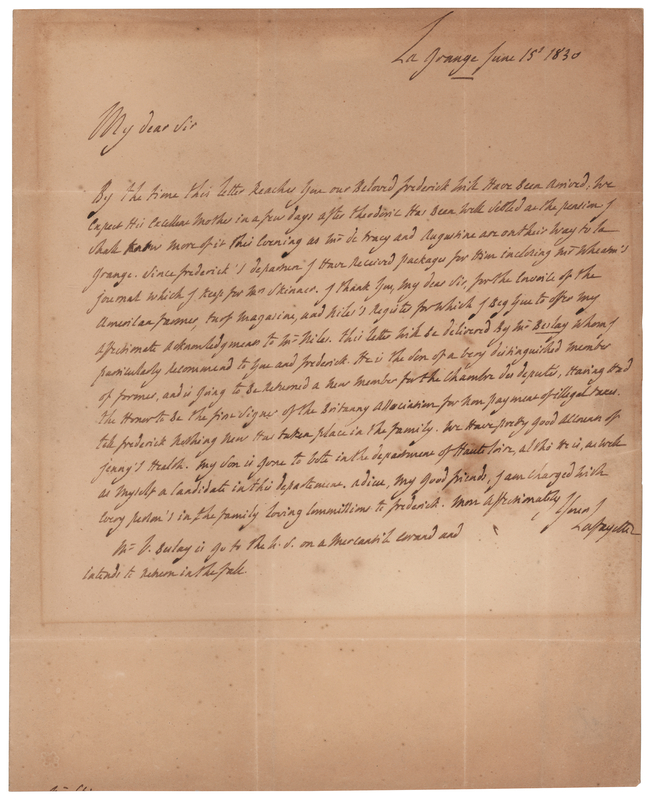 La Grange June 15th 1830
My dear Sir
By the time this letter reaches You our Beloved frederick will Have Been Arrived, We
expect His excellent Mother in a few days after theodoric Has Been Well Settled at the pension I
shall know more of it this evening as Mr de tracy and Augustine are on their Way to la
Grange. Since frederick's departure I Have Received packages for Him inclosing Mr Wheaton's
journal which I Keep for Mr Skinner. I thank You, My dear Sir, for the Envoice of the
American farmer, turf Magazine, and Niles's Register for which I Beg You to offer my
Affectionate Acknowledgments to Mr Niles. this letter will Be delivered By Mr Beslay whom I
particularly recommend to You and frederick He is the Son of a very distinguished Member
of former, and is going to Be Returned a new Member for the Chambre des deputés, Having Had
the Honor to Be the first Signer of the Britanny Association for non payment of illegal taxes.
tell frederick Nothing New Has taken place in the family. We Have pretty good Accounts of
Jenny's Health. My Son is gone to Vote in the department of Haute Loire, altho He is, as well
as Myself a Candidate in this departement. adieu, My good friends, I am charged with
every person's in the family loving Commissions to frederick. Most Affectionately Yours
Lafayette
Mr B. Beslay is go to the U. S. on a Mercantile errand and
intends to Return in the fall.